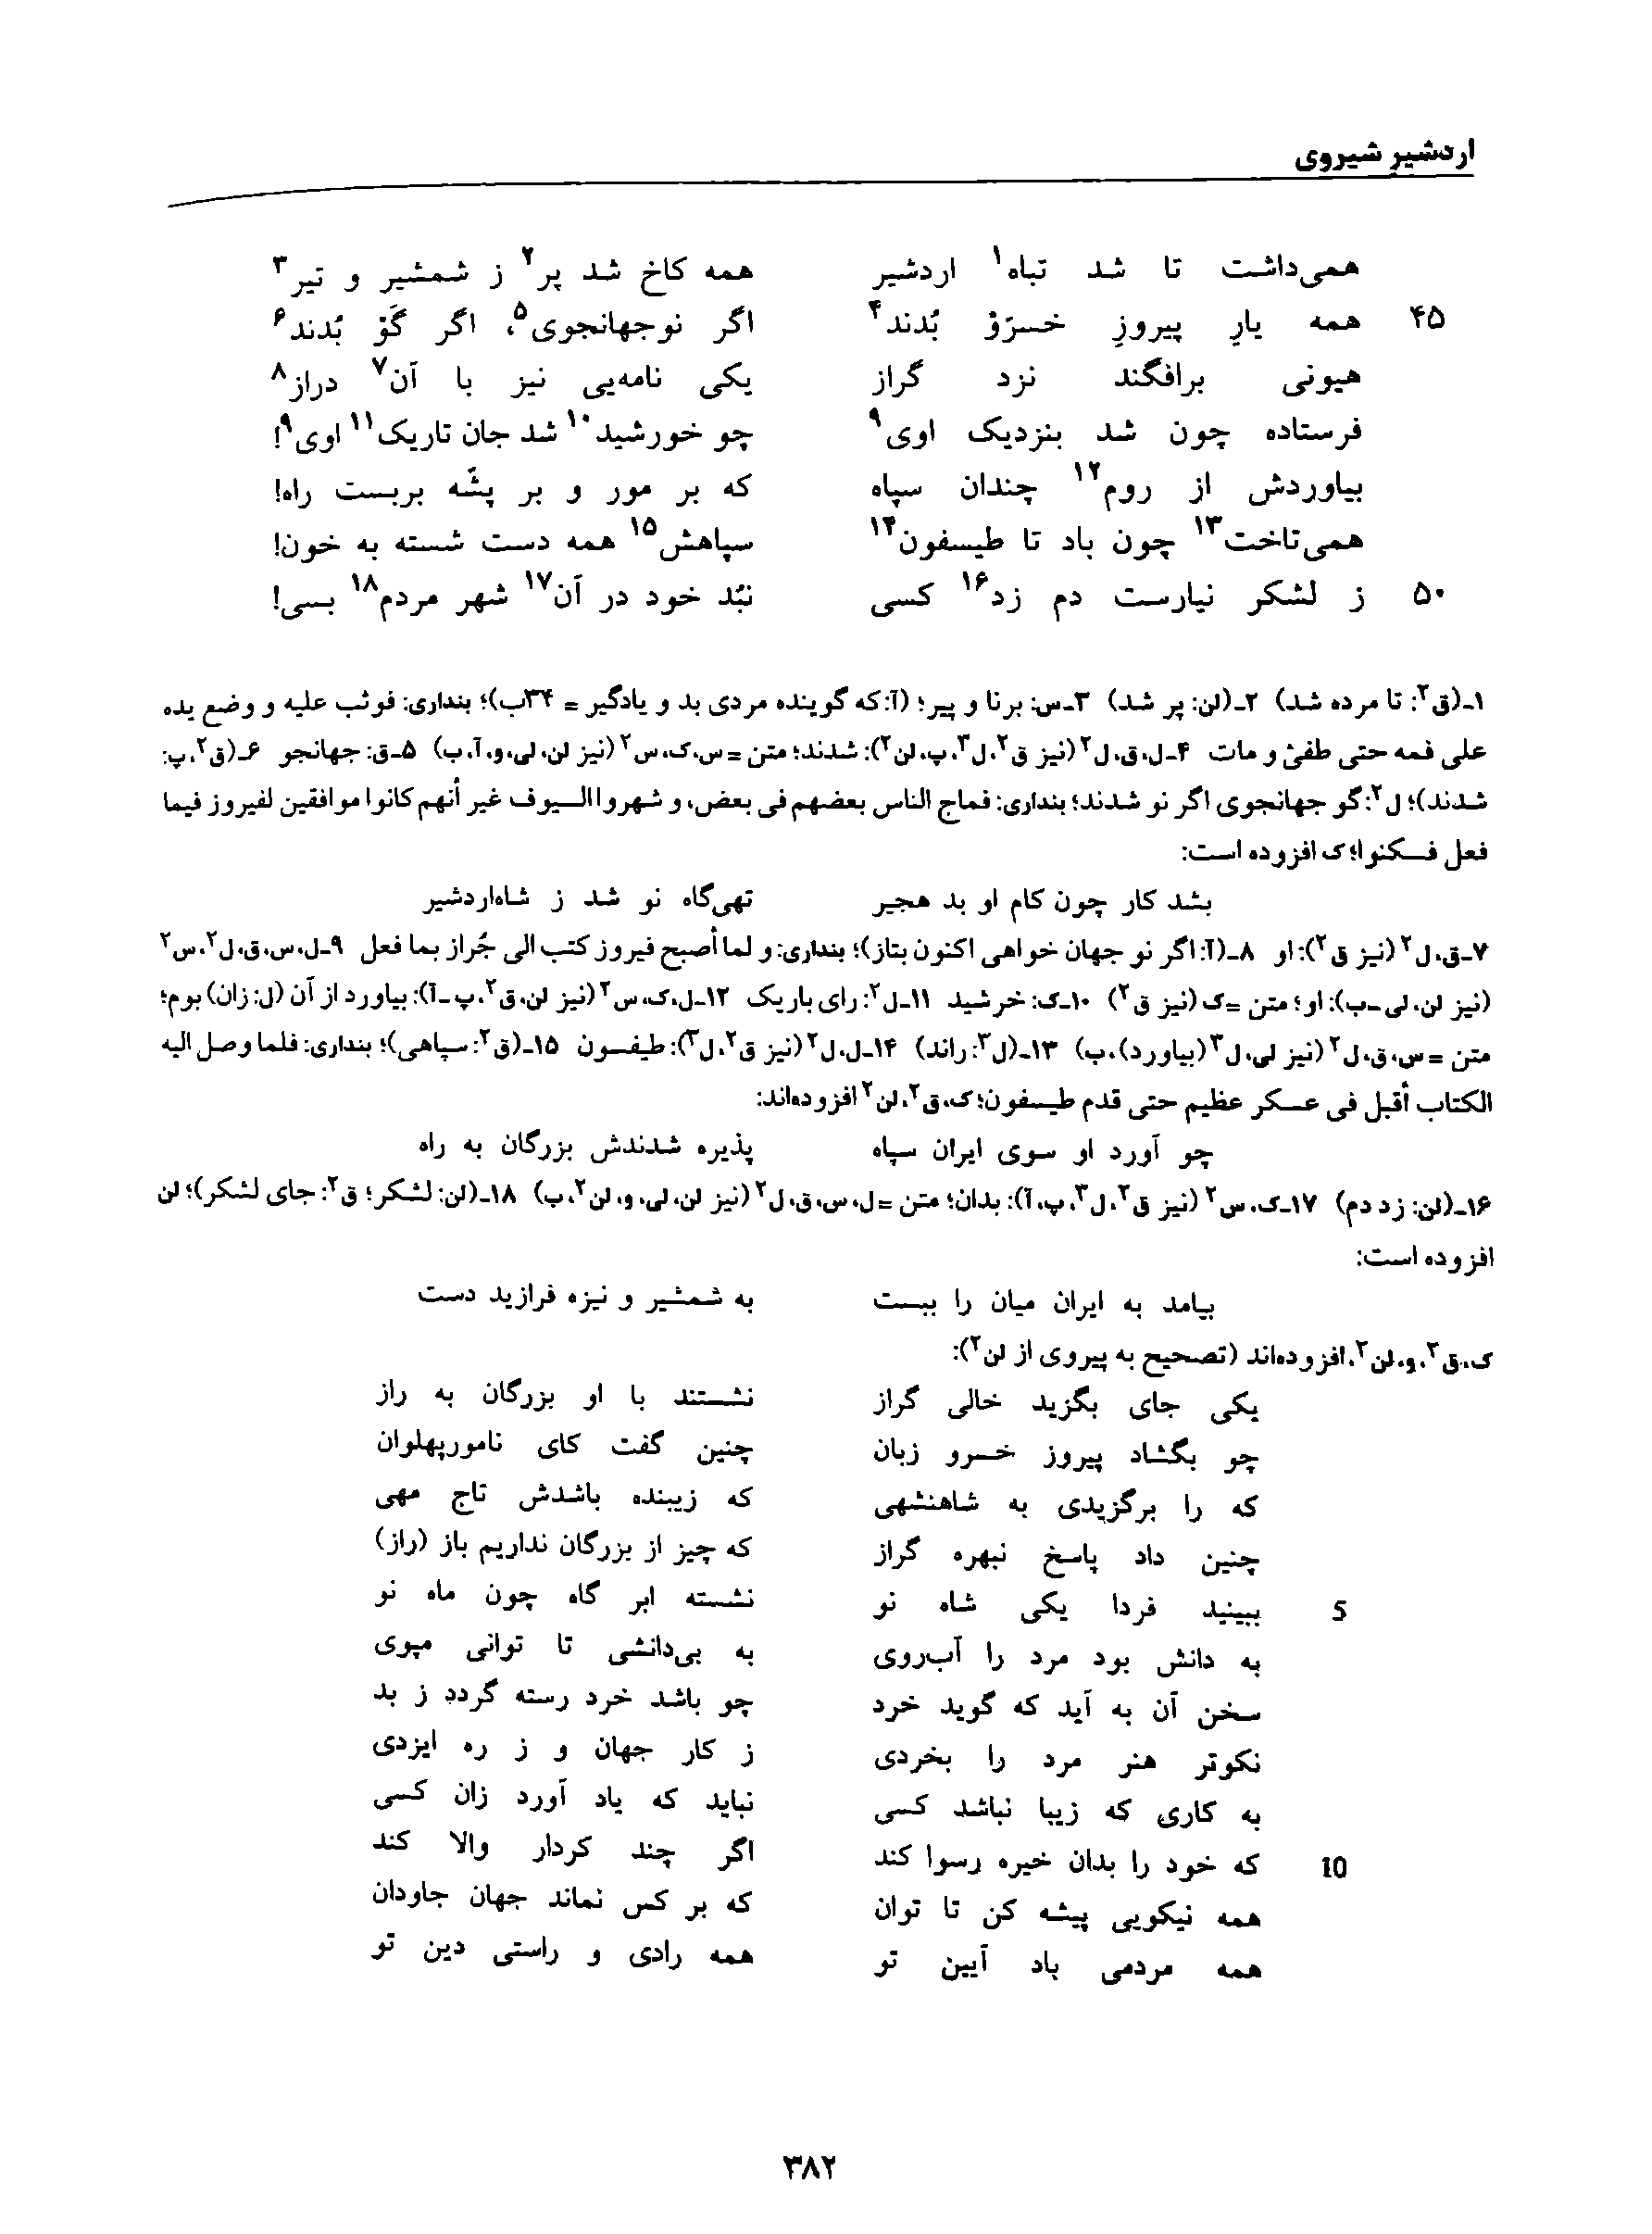 اردشیرِ شیروی
همی‌داشت تا شد تباه۱ اردشیر همه کاخ شد پر۲ ز شمشیر و تیر۳
۴۵ همه یارِ پیروزِ خسرَوْ بُدند۴ اگر نوجهانجوی۵، اگر گَوْ بُدند۶
هیونی برافگند نزد گراز یکی نامه‌یی نیز با آن۷ دراز۸
فرستاده چون شد بنزدیک اوی۹ چو خورشید۱۰ شد جان تاریک۱۱ اوی۹!
بیاوردش از روم۱۲ چندان سپاه که بر مور و بر پشّه بربست راه!
همی‌تاخت۱۳ چون باد تا طیسفون۱۴ سپاهش۱۵ همه دست شسته به خون!
۵۰ ز لشکر نیارست دم زد۱۶ کسی نبُد خود در آن۱۷ شهر مردم۱۸ بسی!
۱ـ(ق۲: تا مرده شد) ۲ـ(لن: پر شد) ۳ـس: برنا و پیر؛ (آ: که گوینده مردی بد و یادگیر = ۳۴ب)؛ بنداری: فوثب علیه و وضع یده
علی فمه حتی طفئ و مات ۴ـل،ق،ل۲ (نیز ق۲،ل۳،پ،لن۲): شدند؛ متن =س،ک،س۲ (نیز لن،لی،و،آ،ب) ۵ـق: جهانجو ۶ـ(ق۲،پ:
شدند)؛ ل۲: گو جهانجوی اگر نو شدند؛ بنداری: فماج الناس بعضهم فی بعض، و شهروا السیوف غیر أنهم کانوا موافقین لفیروز فیما
فعل فسکنوا؛ ک افزوده است:
بشد کار چون کام او بد هجیر تهی‌گاه نو شد ز شاه‌اردشیر
۷ـق،ل۲ (نیز ق۲): او ۸ـ(آ: اگر نو جهان خواهی اکنون بتاز)؛ بنداری: و لما أصبح فیروز کتب الی جُراز بما فعل ۹ـل،س،ق،ل۲،س۲
(نیز لن،لی-ب): او؛ متن =ک (نیز ق۲) ۱۰ـک: خرشید ۱۱ـل۲: رای باریک ۱۲ـل،ک،س۲ (نیز لن،ق۲،پ-آ): بیاورد از آن (ل: زان) بوم؛
متن =س،ق،ل۲ (نیز لی،ل۳ (بیاورد)،ب) ۱۳ـ(ل۳: راند) ۱۴ـل،ل۲ (نیز ق۲،ل۳): طیفسون ۱۵ـ(ق۲: سپاهی)؛ بنداری: فلما وصل الیه
الکتاب أقبل فی عسکر عظیم حتی قدم طیسفون؛ ک،ق۲،لن۲ افزوده‌اند:
چو آورد او سوی ایران سپاه پذیره شدندش بزرگان به راه
۱۶ـ(لن: زد دم) ۱۷ـک،س۲ (نیز ق۲،ل۳،پ،آ): بدان؛ متن =ل،س،ق،ل۲ (نیز لن،لی،و،لن۲،ب) ۱۸ـ(لن: لشکر؛ ق۲: جای لشکر)؛ لن
افزوده است:
بیامد به ایران میان را ببست به شمشیر و نیزه فرازید دست
ک،ق۲،و،لن۲، افزوده‌اند (تصحیح به پیروی از لن۲):
یکی جای بگزید خالی گراز نشستند با او بزرگان به راز
چو بگشاد پیروز خسرو زبان چنین گفت کای نامورپهلوان
که را برگزیدی به شاهنشهی که زیبنده باشدش تاج مهی
چنین داد پاسخ نبهره گراز که چیز از بزرگان نداریم باز (راز)
5 ببینید فردا یکی شاه نو نشسته ابر گاه چون ماه نو
به دانش بود مرد را آب‌روی به بی‌دانشی تا توانی مپوی
سخن آن به آید که گوید خرد چو باشد خرد رسته گردد ز بد
نکوتر هنر مرد را بخردی ز کار جهان و ز ره ایزدی
به کاری که زیبا نباشد کسی نباید که یاد آورد زان کسی
10 که خود را بدان خیره رسوا کند اگر چند کردار والا کند
همه نیکویی پیشه کن تا توان که بر کس نماند جهان جاودان
همه مردمی باد آیین تو همه رادی و راستی دین تو
۳۸۲